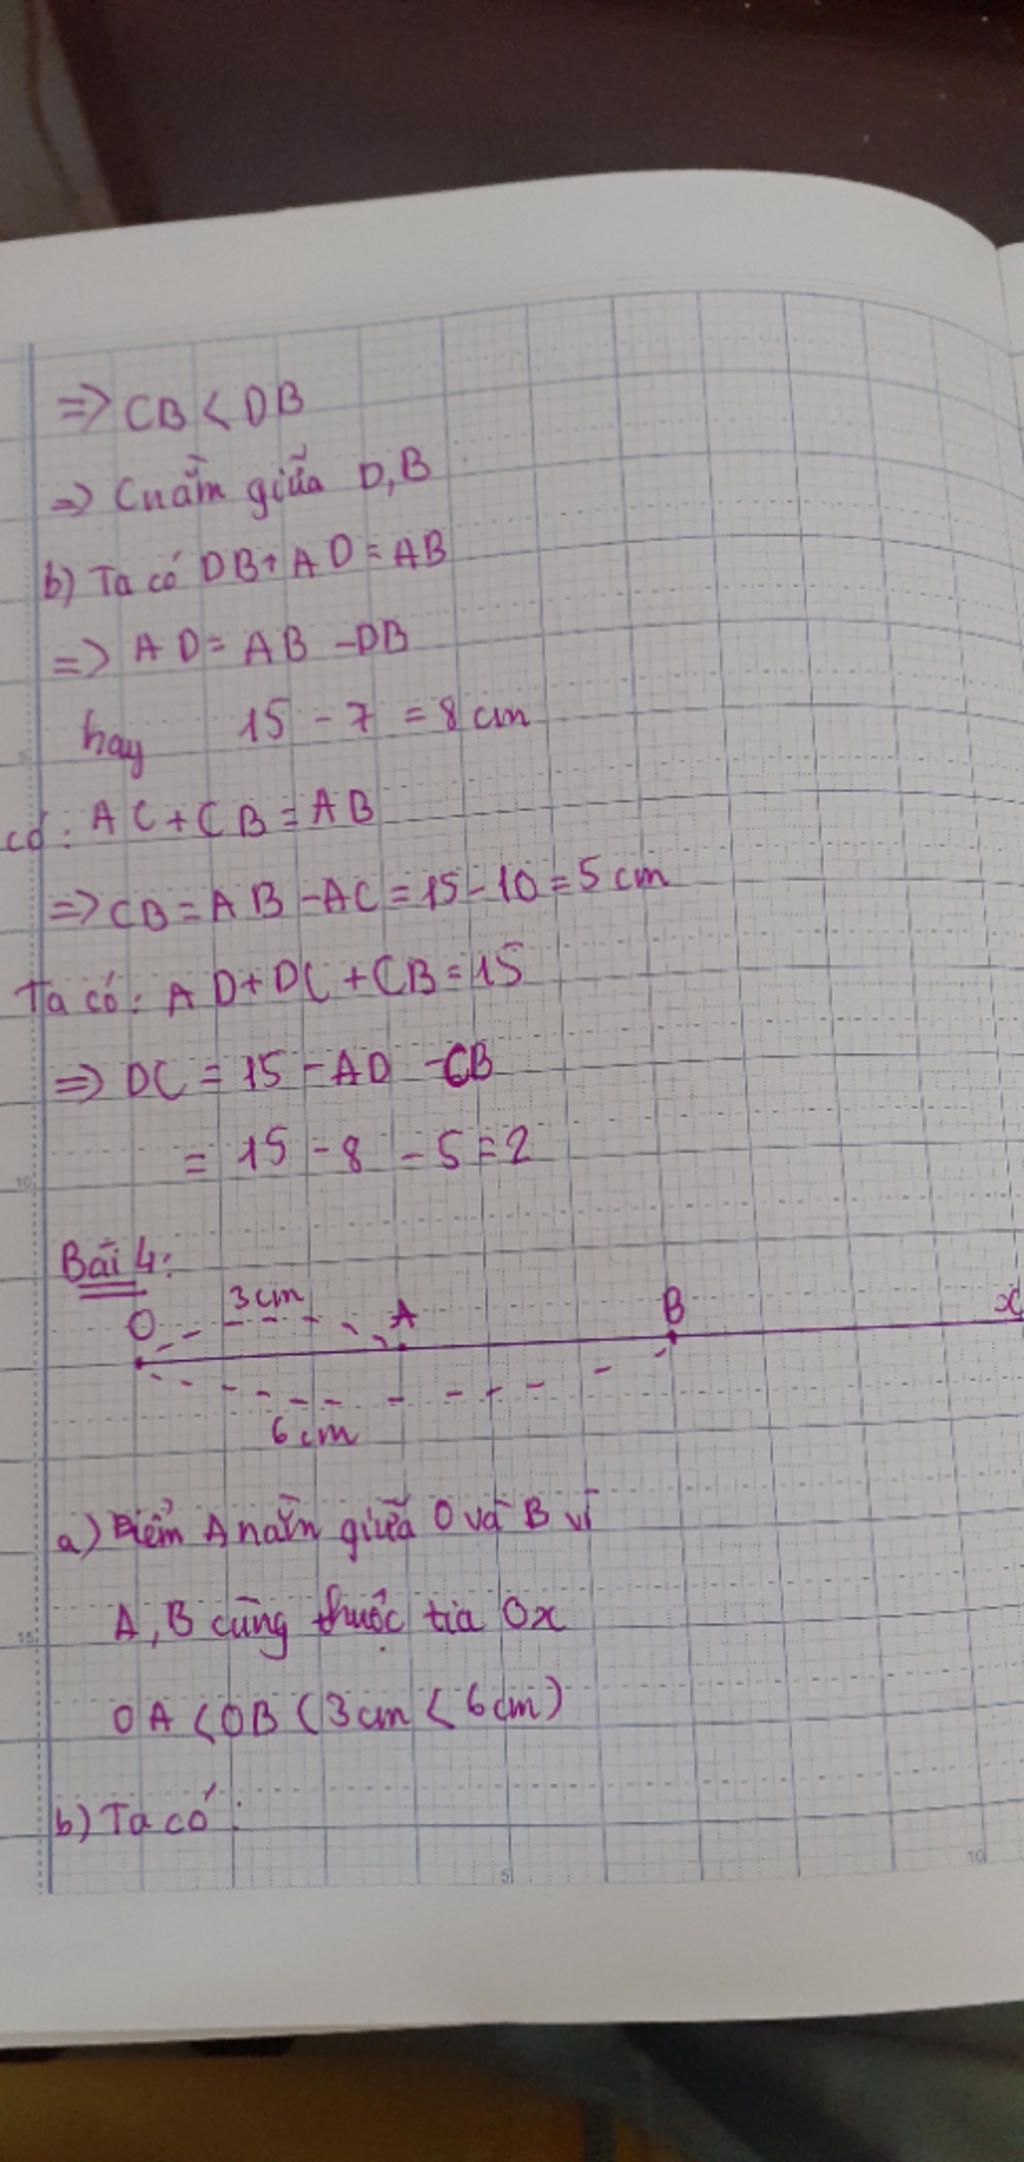 => CB < DB
=> C nằm giữa D, B
b) Ta có DB + AD = AB
=> AD = AB - DB
hay 15 - 7 = 8 cm
có: AC + CB = AB
=> CB = AB - AC = 15 - 10 = 5 cm
Ta có: AD + DC + CB = 15
=> DC = 15 - AD - CB
= 15 - 8 - 5 = 2
10
Bài 4:
O 3cm A B x
6cm
a) Điểm A nằm giữa O và B vì
A, B cùng thuộc tia Ox
15
OA < OB (3cm < 6cm)
b) Ta có:
5 10